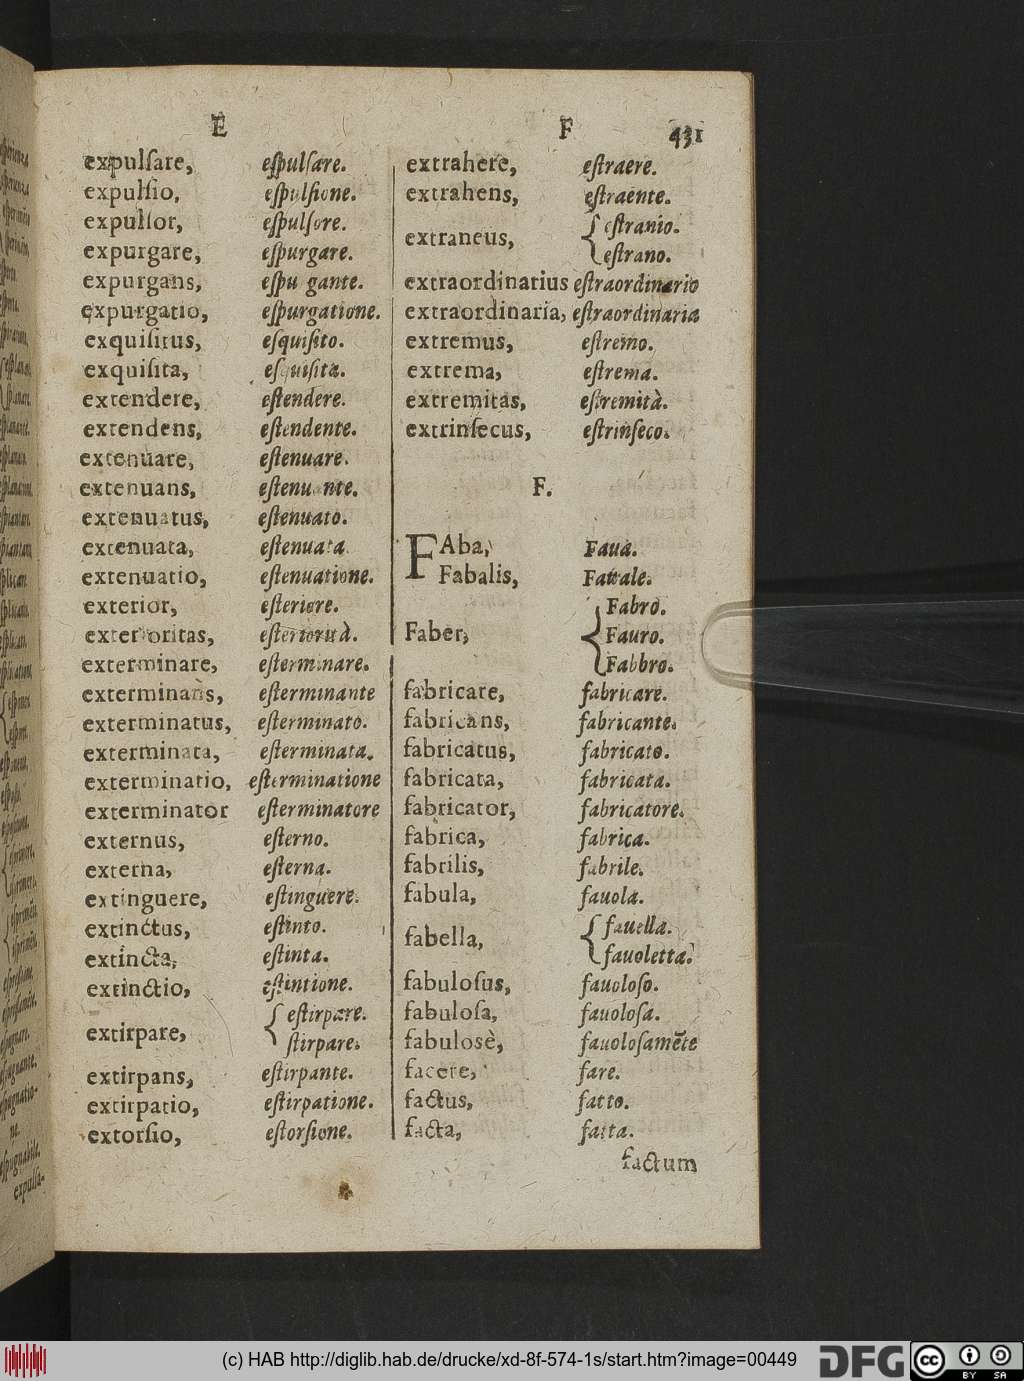 E
expulſare, eſpulſare.
expulſio, eſpulſione.
expulſor, eſpulſore.
expurgare, eſpurgare.
expurgans, eſpu gante.
expurgatio, eſpurgatione.
exquiſitus, eſquiſito.
exquiſita, eſquiſita.
extendere, eſtendere.
extendens, eſtendente.
extenuare, eſtenuare.
extenuans, eſtenuante.
extenuatus, eſtenuato.
extenuata, eſtenuata.
extenuatio, eſtenuatione.
exterior, eſteriore.
exterioritas, eſteriorità.
exterminare, eſterminare.
exterminans, eſterminante
exterminatus, eſterminato.
exterminata, eſterminata.
exterminatio, eſterminatione
exterminator eſterminatore
externus, eſterno.
externa, eſterna.
extinguere, eſtinguere.
extinctus, eſtinto.
extincta, eſtinta.
extinctio, eſtintione.
extirpare, { eſtirpare.
ſtirpare.
extirpans, eſtirpante.
extirpatio, eſtirpatione.
extorſio, eſtorſione.
F 431
extrahere, eſtraere.
extrahens, eſtraente.
extraneus, { eſtranio.
eſtrano.
extraordinarius eſtraordinario
extraordinaria, eſtraordinaria
extremus, eſtremo.
extrema, eſtrema.
extremitas, eſtremità.
extrinſecus, eſtrinſeco.
F.
FAba, Faua.
Fabalis, Fauale.
Faber, { Fabro.
Fauro.
Fabbro.
fabricare, fabricare.
fabricans, fabricante.
fabricatus, fabricato.
fabricata, fabricata.
fabricator, fabricatore.
fabrica, fabrica.
fabrilis, fabrile.
fabula, fauola.
fabella, { fauella.
fauoletta.
fabuloſus, fauoloſo.
fabuloſa, fauoloſa.
fabuloſè, fauoloſamẽte
facere, fare.
factus, fatto.
facta, fatta.
factum
(c) HAB http://diglib.hab.de/drucke/xd-8f-574-1s/start.htm?image=00449
DFG
cc BY SA